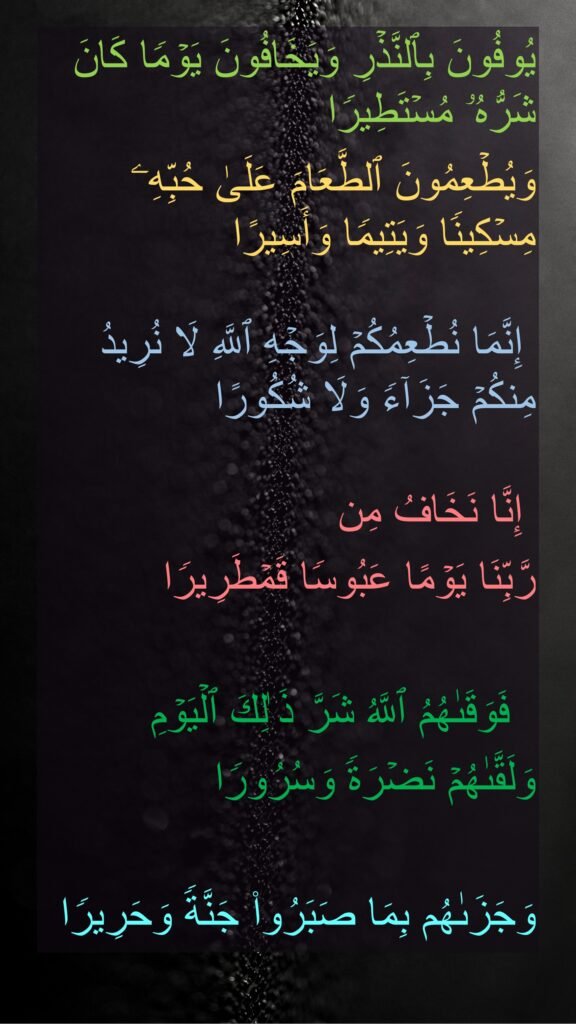 يُوفُونَ بِٱلنَّذۡرِ وَيَخَافُونَ يَوۡمٗا كَانَ
شَرُّهُۥ مُسۡتَطِيرٗا
وَيُطۡعِمُونَ ٱلطَّعَامَ عَلَىٰ حُبِّهِۦ
مِسۡكِينٗا وَيَتِيمٗا وَأَسِيرًا
إِنَّمَا نُطۡعِمُكُمۡ لِوَجۡهِ ٱللَّهِ لَا نُرِيدُ
مِنكُمۡ جَزَآءٗ وَلَا شُكُورًا
إِنَّا نَخَافُ مِن
رَّبِّنَا يَوۡمًا عَبُوسٗا قَمۡطَرِيرٗا
فَوَقَىٰهُمُ ٱللَّهُ شَرَّ ذَٰلِكَ ٱلۡيَوۡمِ
وَلَقَّىٰهُمۡ نَضۡرَةٗ وَسُرُورٗا
وَجَزَىٰهُم بِمَا صَبَرُواْ جَنَّةٗ وَحَرِيرٗا